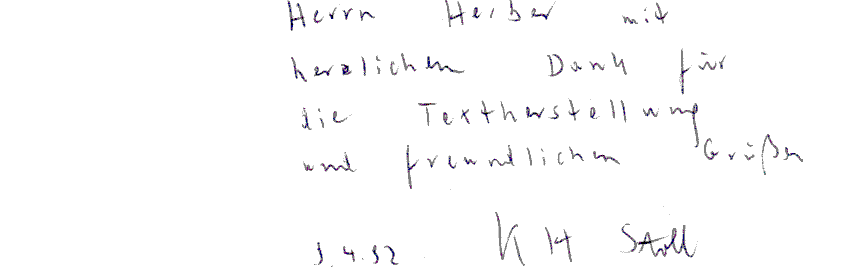 Herrn Herber mit
herzlichen Dank für
die Textherstellung
und freundlichen Grüßen
KH Stoll